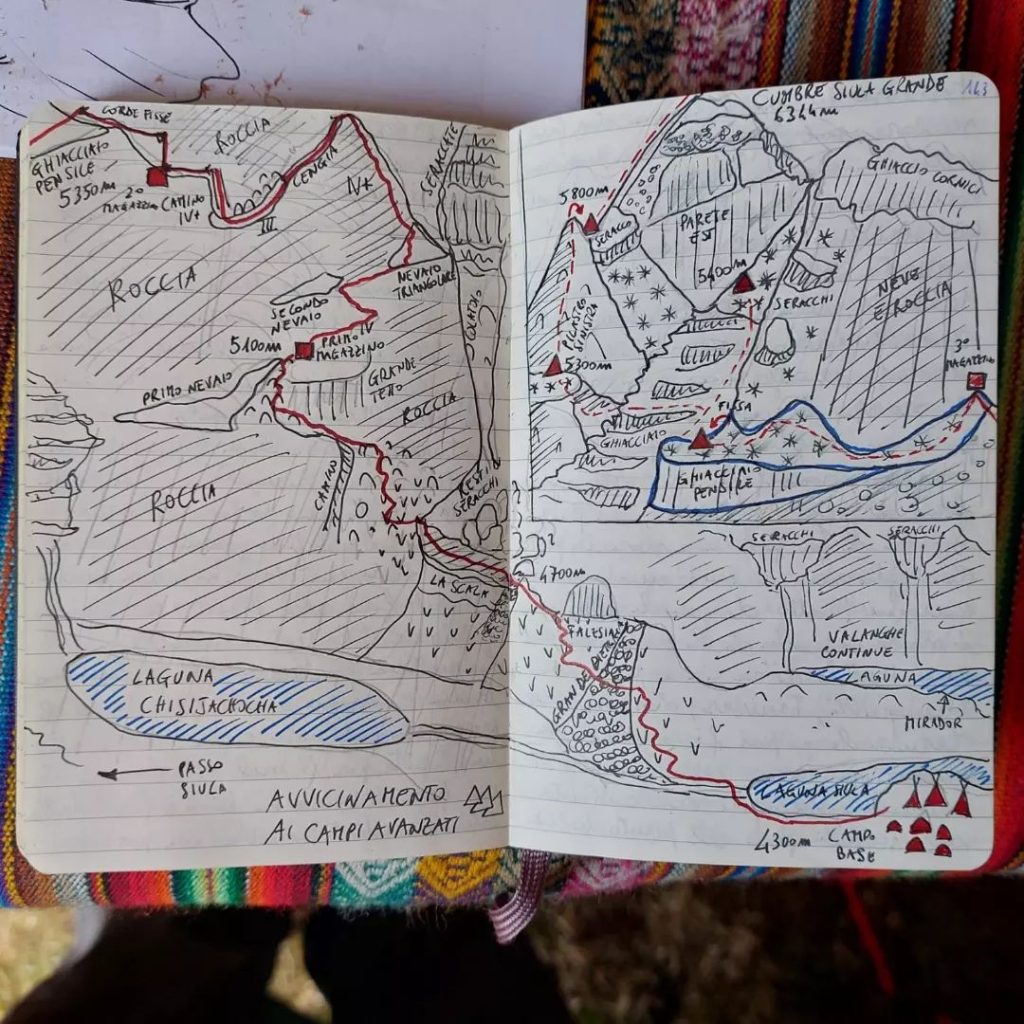 CORDE FISSE
ROCCIA
GHIACCIAIO
PENSILE
5350m
2°
MAGAZZINO
CAMINO
IV+
III
CENGIA
IV+
SERACCATE
ROCCIA
NEVAIO
TRIANGOLARE
SECONDO
NEVAIO
IV
5100m
PRIMO
MAGAZZINO
COLATOIO
PRIMO NEVAIO
GRANDE
TETTO
ROCCIA
ROCCIA
CAMINO
RESTI
SERACCHI
LA SCALA
LAGUNA
CHISIJACHOCHA
PASSO
SIULA
AVVICINAMENTO
AI CAMPI AVANZATI
CUMBRE SIULA GRANDE
6344m
163
5800m
SERACCO
PARETE
EST
GHIACCIO CORNICI
5400m
SERACCHI
NEVE
E ROCCIA
PILASTRO
SINISTRA
5300m
3°
MAGAZZINO
FISSA
GHIACCIAIO
GHIACCIAIO
PENSILE
4700m
SERACCHI
SERACCHI
FALESIA
GRANDE PIETRE
VALANGHE
CONTINUE
LAGUNA
MIRADOR
LAGUNA SIULA
4300m
CAMPO
BASE